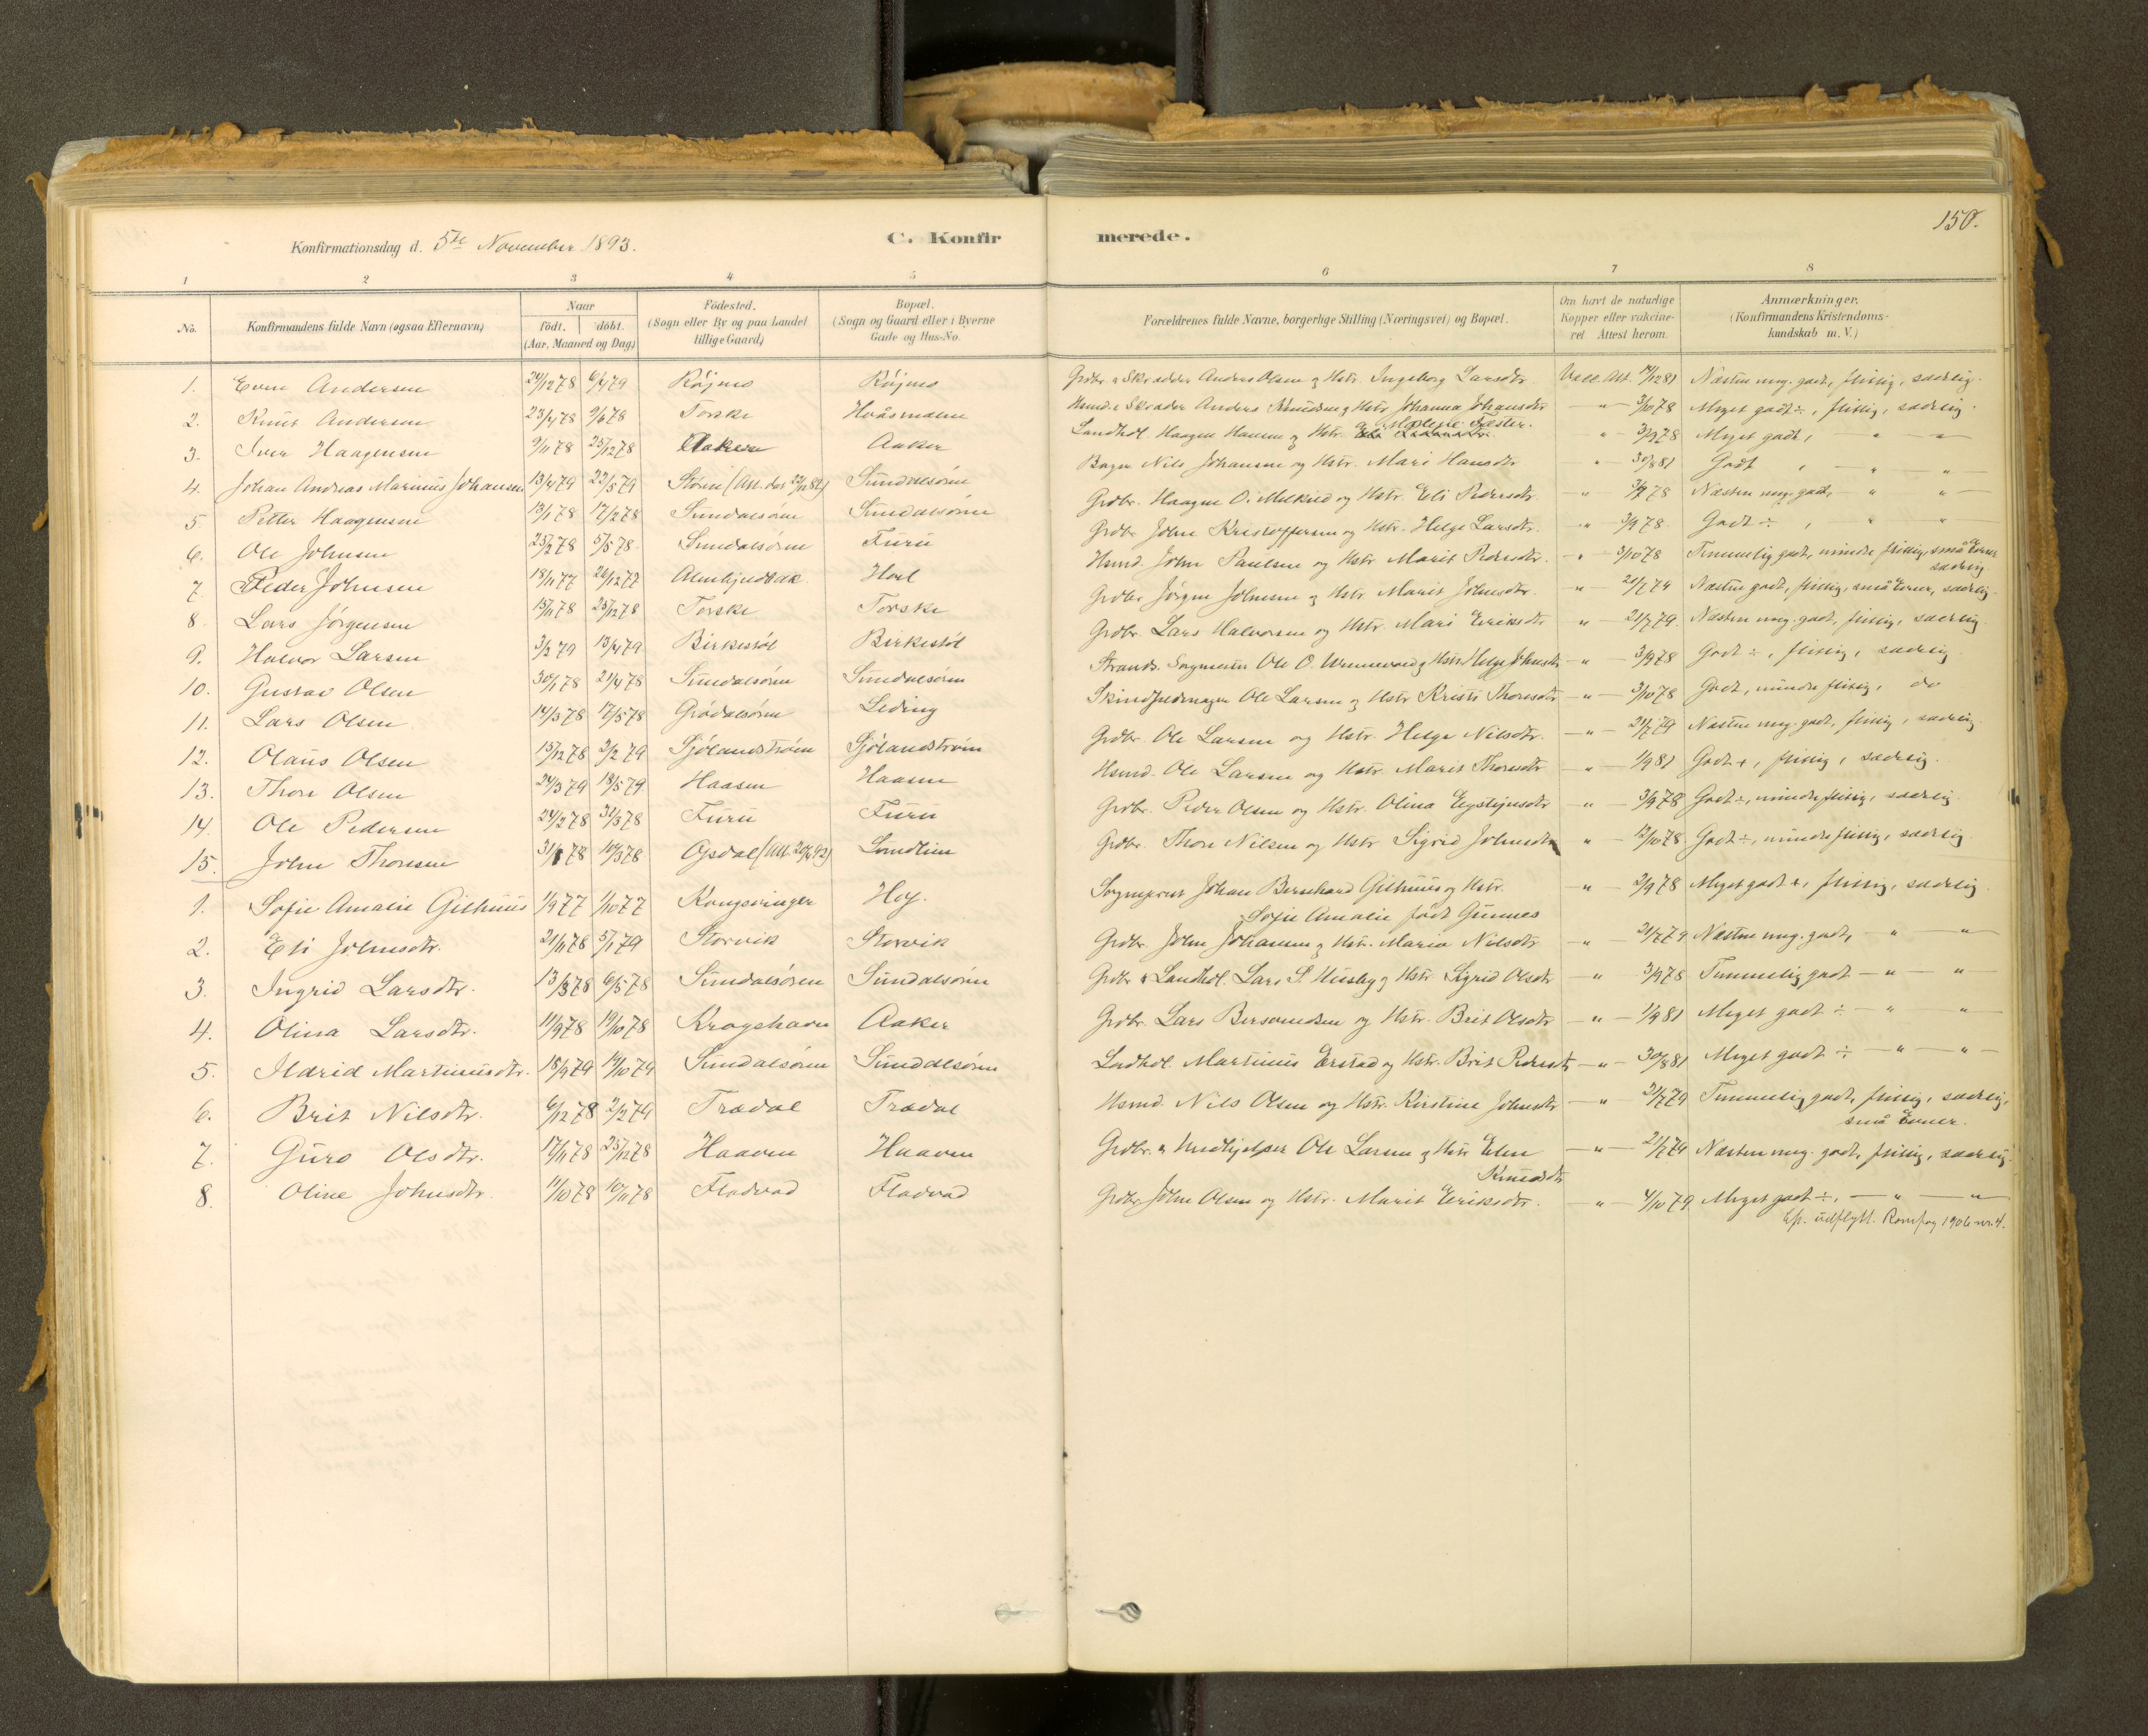 150.
Konfirmationsdag d. 5te November 1893.
C. Konfir merede.
1 2 3 4 5 6 7 8
No. Konfirmandens fulde Navn (ogsaa Efternavn) Naar født. døbt. (Aar, Maaned og Dag) Fødested. (Sogn eller By og paa Landet tillige Gaard) Bopæl. (Sogn og Gaard eller i Byerne Gade og Hus-No. Forældrenes fulde Navne, borgerlige Stilling (Næringsvei) og Bopæl. Om havt de naturlige Kopper eller vakcineret Attest herom. Anmærkninger. (Konfirmandens Kristendomskundskab m. V.)
1. Even Andersen 24/12 78 6/4 79 Röjmo Röjmo Grdbr. & Skrædder Anders Olsen og Hstr. Ingeborg Larsdtr. Vacc. Att. 14/12 81 Næsten meg. godt, flittig, sædelig.
2. Knut Andersen 23/4 78 9/6 78 Torske Hoåsmoen Hsmd. & Skræder Anders Knudsen og Hstr. Johanna Johansdtr. " 3/10 78 Meget godt ÷, flittig, sædelig.
3. Iver Haagensen 9/11 78 25/12 78 Aaker Landhdl. Haagen Hansen og Hstr. " 3/9 78 Meget godt, " "
4. Johan Andreas Marinius Johansen 13/4 79 22/5 79 Støren Sundalsøren Bager Nils Johansen og Hstr. Mari Hansdtr " 30/8 81 Godt, " "
5. Petter Haagensen 13/1 78 17/2 78 Sundalsøren Sundalsøren Grdbr. Haagen O. Melkild og Hstr. Eli Pedersdtr. " 3/9 78 Næsten meg. godt, " "
6. Ole Johnsen 25/2 78 5/5 78 Sundalsøren Furu Grdbr. John Kristoffersen og Hstr. Helge Larsdtr. " 3/9 78 Godt ÷, " "
7. Peder Johnsen 18/11 77 26/12 77 Almskjedbak Hoel Hsmd. John Paulsen og Hstr. Marit Pedersdtr. " 3/10 78 Temmelig godt, mindre flittig, små Evner sædelig
8. Lars Jørgensen 15/11 78 25/12 78 Torske Torske Grdbr. Jørgen Johnsen og Hstr. Marit Johnsdtr. " 21/7 79 Næsten godt, flittig, små Evner, sædelig.
9. Halvor Larsen 3/2 79 13/4 79 Birkestøl Birkestøl Grdbr. Lars Halvorsen og Hstr. Mari Eriksdtr " 21/7 79. Næsten meg. godt, flittig, sædelig.
10. Gustav Olsen 30/1 78 21/4 78 Sundalsøren Sundalsøren Ole O. og Hstr. Helge Johnsdtr " 3/9 78 Godt ÷, flittig, sædelig
11. Lars Olsen 14/3 78 17/5 78 Grødalsøren Leding Skindfeldmager Ole Larsen og Hstr. Kristi Thoresdtr " 3/10 78 Godt, mindre flittig, do
12. Olaus Olsen 15/12 78 2/2 79 Sjølandstrøen Sjølandstrøen Grdbr. Ole Larsen og Hstr. Helge Nilsdtr. " 21/7 79 Næsten meg. godt, flittig, sædelig.
13. Thore Olsen 24/3 79 18/5 79 Haasen Haasen Hsmd. Ole Larsen og Hstr. Marit Thoresdtr " 1/9 81 Godt +, flittig, sædelig.
14. Ole Pedersen 24/2 78 31/3 78 Furu Furu Grdbr. Peder Olsen og Hstr. Olina Eystejnsdtr " 3/9 78 Godt ÷, mindre flittig, sædelig
15. John Thoresen 31/1 78 10/3 78 Opdal Grdbr. Thore Nilsen og Hstr. Sigrid Johnsdtr " 12/10 78. Godt ÷, mindre flittig, sædelig
1. Sofie Amalie Gilhuus 1/9 77 1/10 77 Kongsvinger Hov. Sogneprest Johan Bernhard Gilhuus og Hstr. Sofie Amalie født Gunnes " 3/9 78 Meget godt +, flittig, sædelig
2. Eli Johnsdtr. 21/11 78 5/1 79 Storvik Storvik Grdbr. John Johansen og Hstr. Maria Nilsdtr " 21/7 79 Næsten meg. godt, " "
3. Ingrid Larsdtr. 13/3 78 6/5 78 Sundalsøren Sundalsøren Grdbr. & Landhdl. Lars S. Husby og Hstr. Sigrid Olsdtr " 3/9 78 Temmelig godt " "
4. Olina Larsdtr. 11/9 78 19/10 78 Kragshavn Aaker Grdbr. Lars Bersvendsen og Hstr. Brit Olsdtr " 1/9 81 Meget godt ÷ " "
5. Ildrid Martinusdtr. 18/9 79 19/10 79 Sundalsøren Sundalsøren Ladhdl. Martinus Erstad og Hstr. Brit Pedersdtr " 30/8 81 Meget godt ÷ " "
6. Brit Nilsdtr. 6/12 78 2/2 79 Trædal Trædal Hsmd. Nils Olsen og Hstr. Kirstine Johnsdtr " 21/7 79 Temmelig godt, flittig, sædelig, små Evner.
7. Guro Olsdtr. 17/11 78 25/12 78 Haaven Haaven Grdbr. & Medhjelper Ole Larsen og Hstr. Elen Knudsdtr " 21/7 79 Næsten meg. godt, flittig, sædelig.
8. Oline Johnsdtr. 11/10 78 10/11 78 Fladvad Fladvad Grdbr. John Olsen og Hstr. Marit Eriksdtr. " 4/10 79 Meget godt ÷, " "
udflytt. 1906 nr. 4.